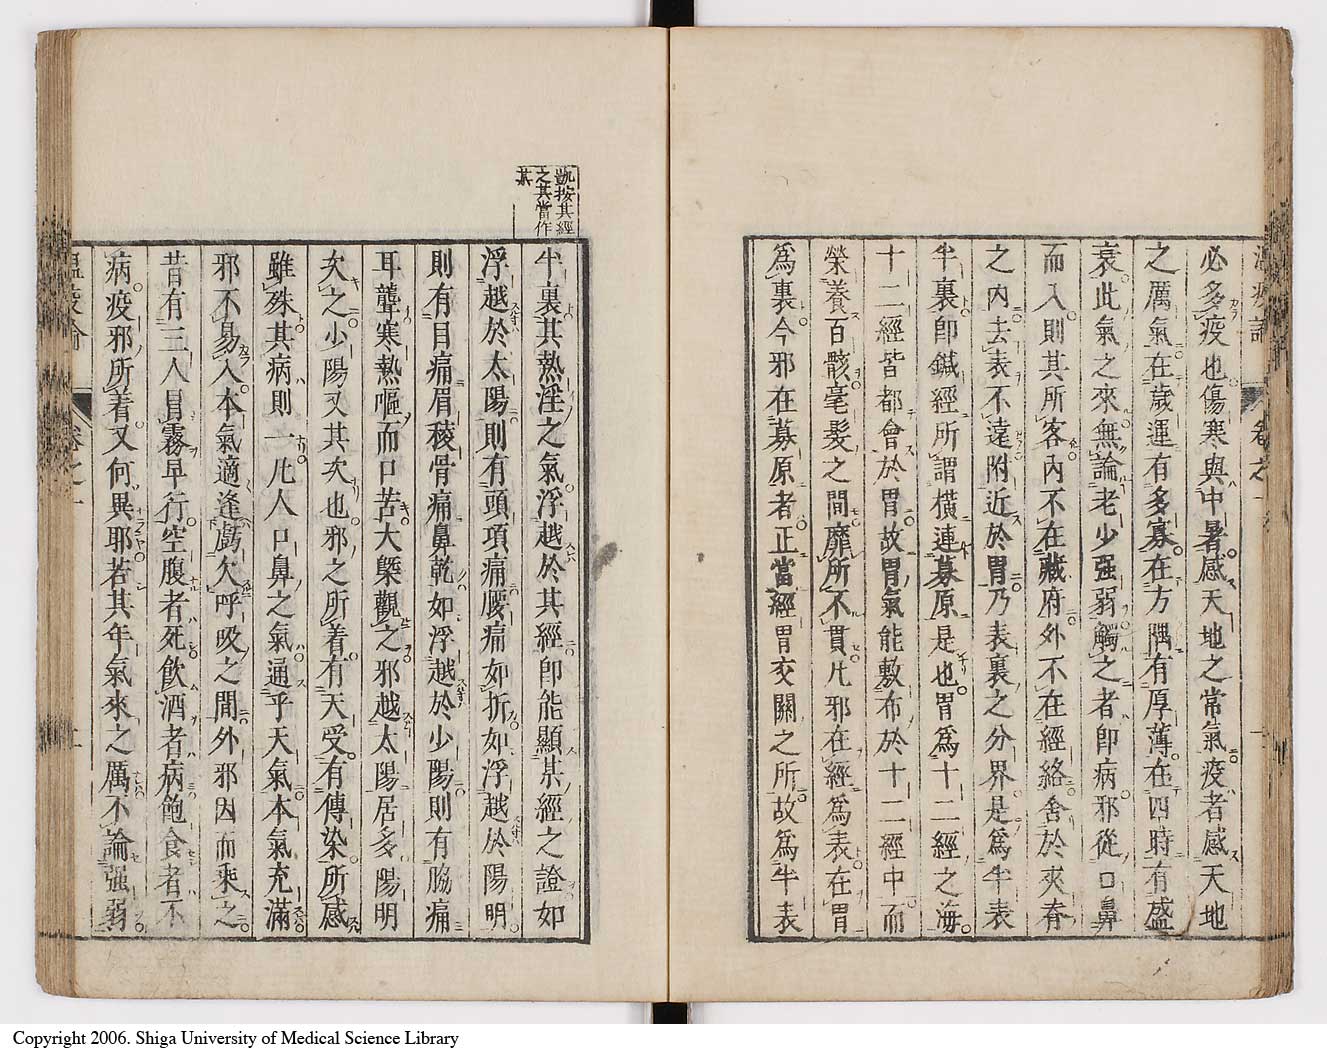 溫疫論 卷之一
必多疫也傷寒與中暑感天地之常氣疫者感天地
之厲氣在歲運有多寡在方隅有厚薄在四時有盛
衰此氣之來無論老少强弱觸之者卽病邪從口鼻
而入則其所客內不在臟府外不在經絡舍於夾脊
之內去表不遠附近於胃乃表裏之分界是爲半表
半裏卽鍼經所謂橫連募原是也胃爲十二經之海
十二經皆都會於胃故胃氣能敷布於十二經中而
榮養百骸毫髮之間靡所不貫凡邪在經爲表在胃
爲裏今邪在募原者正當經胃交關之所故爲半表
凱按其經
之其當作
某
半裏其熱淫之氣浮越於其經卽能顯某經之證如
浮越於太陽則有頭項痛腰痛如折如浮越於陽明
則有目痛眉稜骨痛鼻乾如浮越於少陽則有脇痛
耳聾寒熱嘔而口苦大槩觀之邪越太陽居多陽明
次之少陽又其次也邪之所着有天受有傳染所感
雖殊其病則一凡人口鼻之氣通乎天氣本氣充滿
邪不易入本氣適逢虧欠呼吸之間外邪因而乘之
昔有三人冒霧早行空腹者死飮酒者病飽食者不
病疫邪所着又何異耶若其年氣來之厲不論强弱
溫疫論 卷之一
Copyright 2006. Shiga University of Medical Science Library